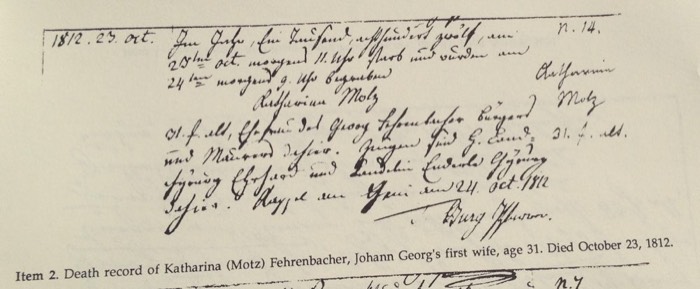 1812. 23. oct. Im Jahr, Ein Tausend, achthundert zwölf, am n. 14.
23ten oct. morgens 11. Uhr starb und wurden am
24ten morgens 9. Uhr begraben Katharina
Katharina Motz Motz
31. J. alt, Ehefrau des Georg Fehrenbacher bürgers 31. J. alt.
und Maurers dahier. Zeugen sind H.
Ehrhard und Landelin Enderle
dahier. Kappel am Rhein am 24. oct. 1812
Burg Pfarrer.
Item 2. Death record of Katharina (Motz) Fehrenbacher, Johann Georg's first wife, age 31. Died October 23, 1812.
n. 7